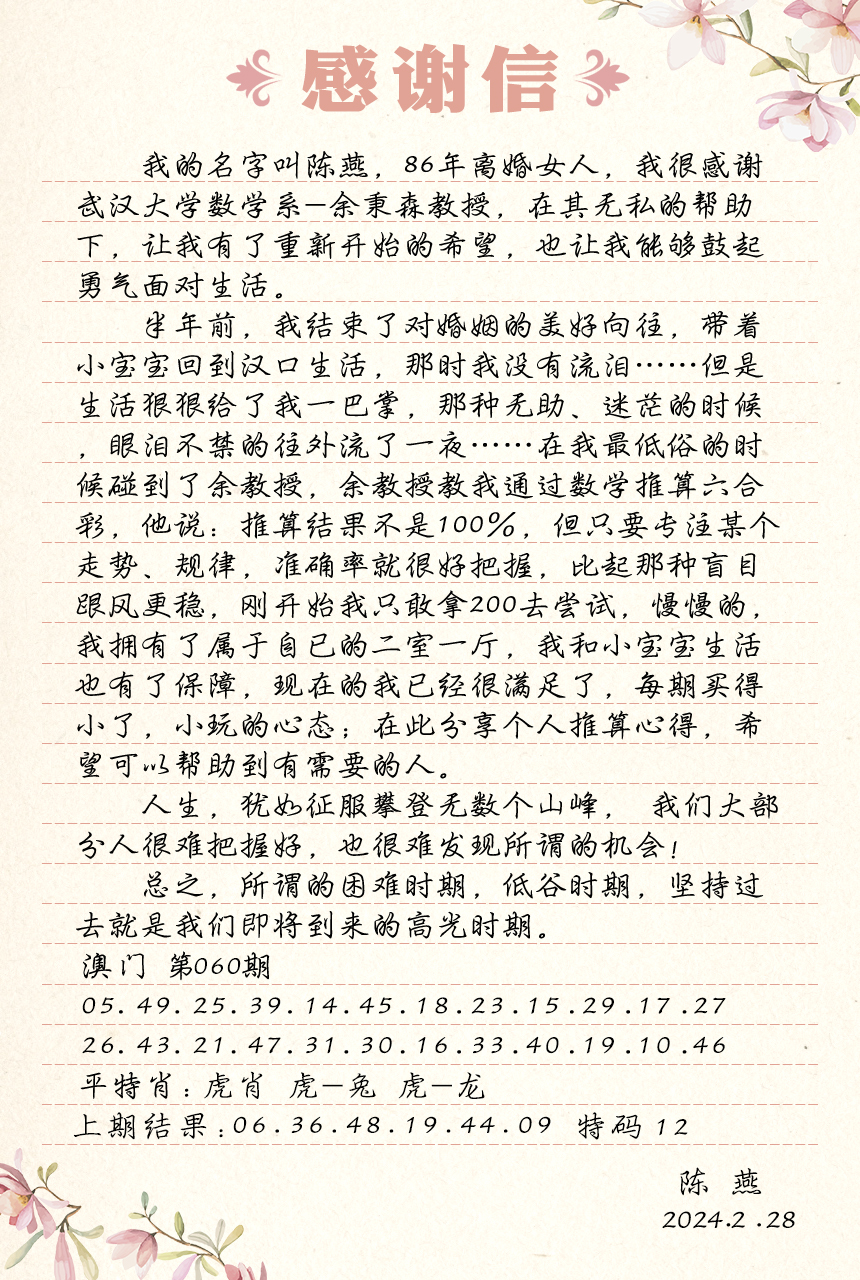 感谢信
我的名字叫陈燕，86年离婚女人，我很感谢
武汉大学数学系—余秉森教授，在其无私的帮助
下，让我有了重新开始的希望，也让我能够鼓起
勇气面对生活。
半年前，我结束了对婚姻的美好向往，带着
小宝宝回到汉口生活，那时我没有流泪……但是
生活狠狠给了我一巴掌，那种无助、迷茫的时候
，眼泪不禁的往外流了一夜……在我最低俗的时
候碰到了余教授，余教授教我通过数学推算六合
彩，他说：推算结果不是100%，但只要专注某个
走势、规律，准确率就很好把握，比起那种盲目
跟风更稳，刚开始我只敢拿200去尝试，慢慢的，
我拥有了属于自已的二室一厅，我和小宝宝生活
也有了保障，现在的我已经很满足了，每期买得
小了，小玩的心态；在此分享个人推算心得，希
望可以帮助到有需要的人。
人生，犹如征服攀登无数个山峰， 我们大部
分人很难把握好，也很难发现所谓的机会！
总之，所谓的困难时期，低谷时期，坚持过
去就是我们即将到来的高光时期。
澳门 第060期
05.49.25.39.14.45.18.23.15.29.17.27
26.43.21.47.31.30.16.33.40.19.10.46
平特肖：虎肖 虎—兔 虎—龙
上期结果：06.36.48.19.44.09 特码 12
陈 燕
2024.2.28